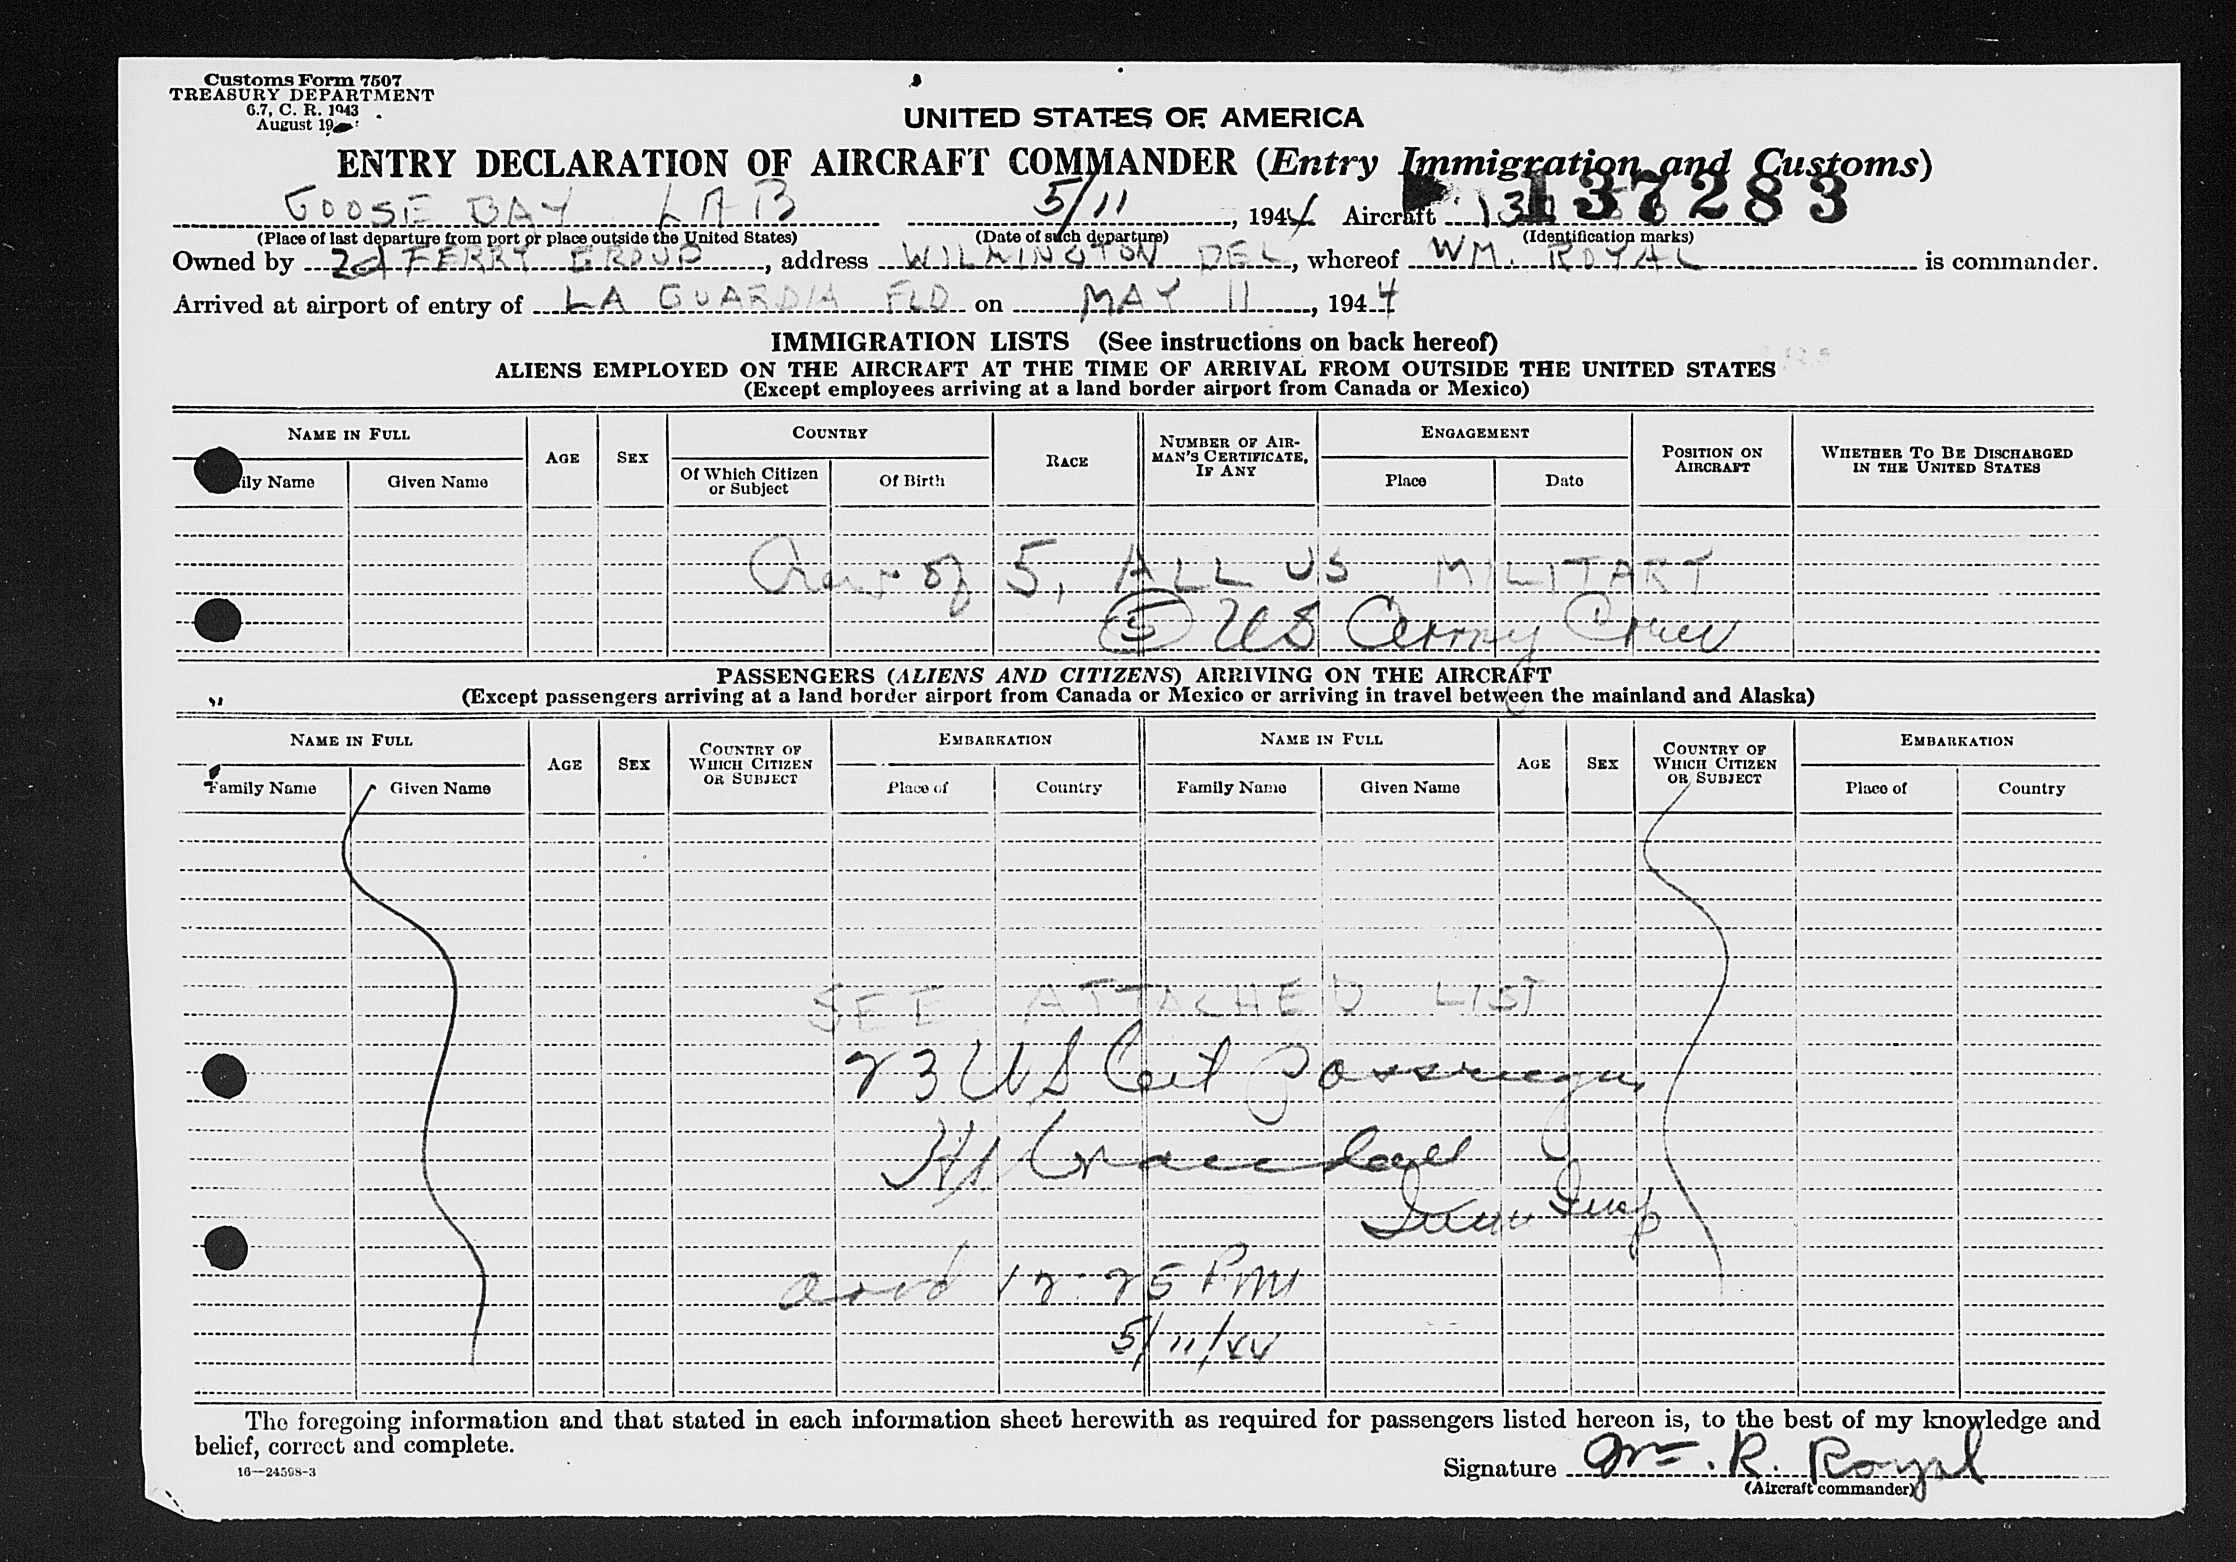 Customs Form 7507
TREASURY DEPARTMENT
6.7, C. R. 1943
August 19
UNITED STATES OF AMERICA
ENTRY DECLARATION OF AIRCRAFT COMMANDER (Entry Immigration and Customs)
137283
GOOSE BAY LAB 5/11, 1944 Aircraft
(Place of last departure from port or place outside the United States) (Date of such departure) (Identification marks)
Owned by 2d FERRY GROUP, address WILMINGTON DEL, whereof WM. ROYAL is commander.
Arrived at airport of entry of LA GUARDIA FLD on MAY 11, 1944
IMMIGRATION LISTS (See instructions on back hereof)
ALIENS EMPLOYED ON THE AIRCRAFT AT THE TIME OF ARRIVAL FROM OUTSIDE THE UNITED STATES
(Except employees arriving at a land border airport from Canada or Mexico)
NAME IN FULL AGE SEX COUNTRY RACE NUMBER OF AIRMAN'S CERTIFICATE, IF ANY ENGAGEMENT POSITION ON AIRCRAFT WHETHER TO BE DISCHARGED IN THE UNITED STATES
ily Name Given Name Of Which Citizen or Subject Of Birth Place Date
Crew of 5, ALL US MILITARY
5 US Army Crew
PASSENGERS (ALIENS AND CITIZENS) ARRIVING ON THE AIRCRAFT
(Except passengers arriving at a land border airport from Canada or Mexico or arriving in travel between the mainland and Alaska)
NAME IN FULL AGE SEX COUNTRY OF WHICH CITIZEN OR SUBJECT EMBARKATION NAME IN FULL AGE SEX COUNTRY OF WHICH CITIZEN OR SUBJECT EMBARKATION
Family Name Given Name Place of Country Family Name Given Name Place of Country
SEE ATTACHED LIST
23 US Cit Passengers
Imm Insp
arrd 12:25 PM
5/11/44
The foregoing information and that stated in each information sheet herewith as required for passengers listed hereon is, to the best of my knowledge and
belief, correct and complete.
16—24598-3
Signature Wm. R. Royal
(Aircraft commander)